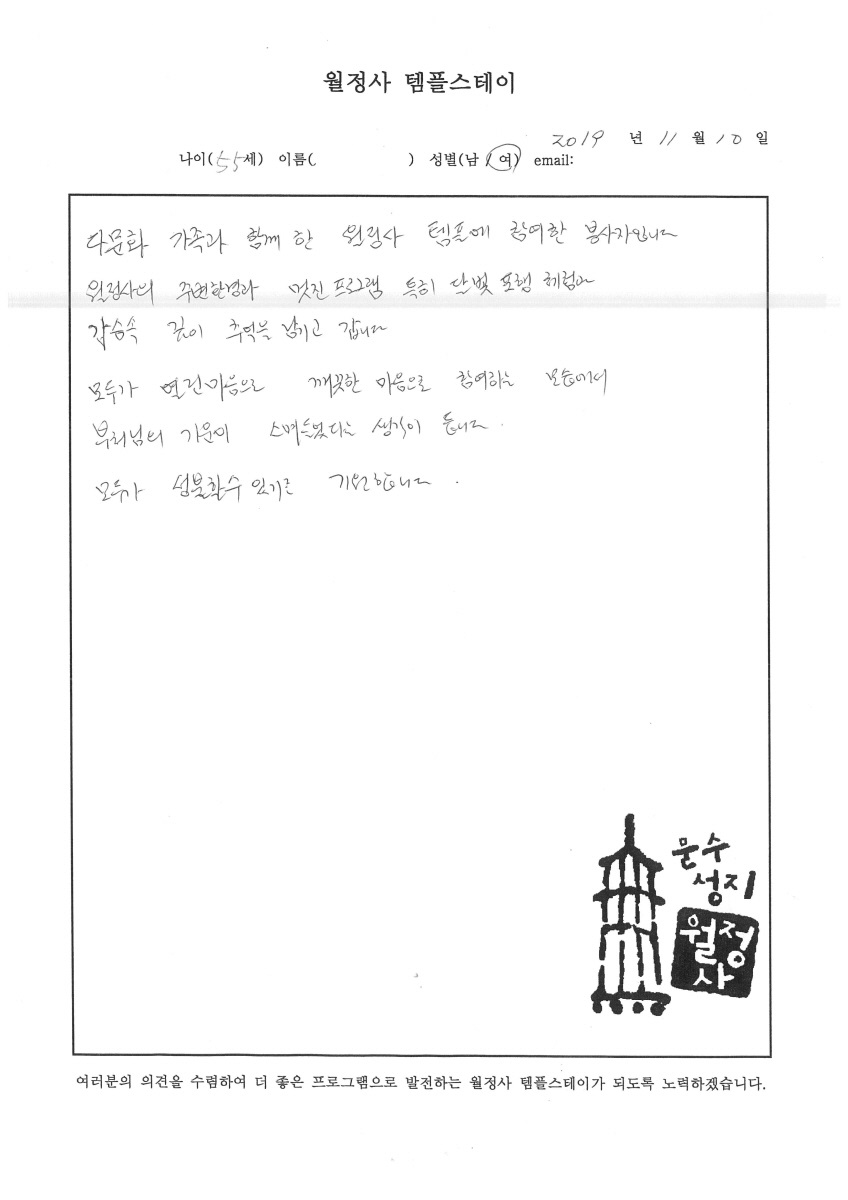 월정사 템플스테이
2019 년 11 월 10 일
나이(55세) 이름( ) 성별(남 / 여) email:
다문화 가족과 함께 한 월정사 템플에 참여한 봉사자입니다
월정사의 주변환경과 멋진 프로그램 특히 달빛 포행 체험과
깊이 추억을 남기고 갑니다
모두가 열린마음으로 깨끗한 마음으로 참여하는 모습에서
부처님의 기운이 스며들었다는 생각이 듭니다.
모두가 성불할수 있기를 기원합니다.
문수
성지
월정
사
여러분의 의견을 수렴하여 더 좋은 프로그램으로 발전하는 월정사 템플스테이가 되도록 노력하겠습니다.